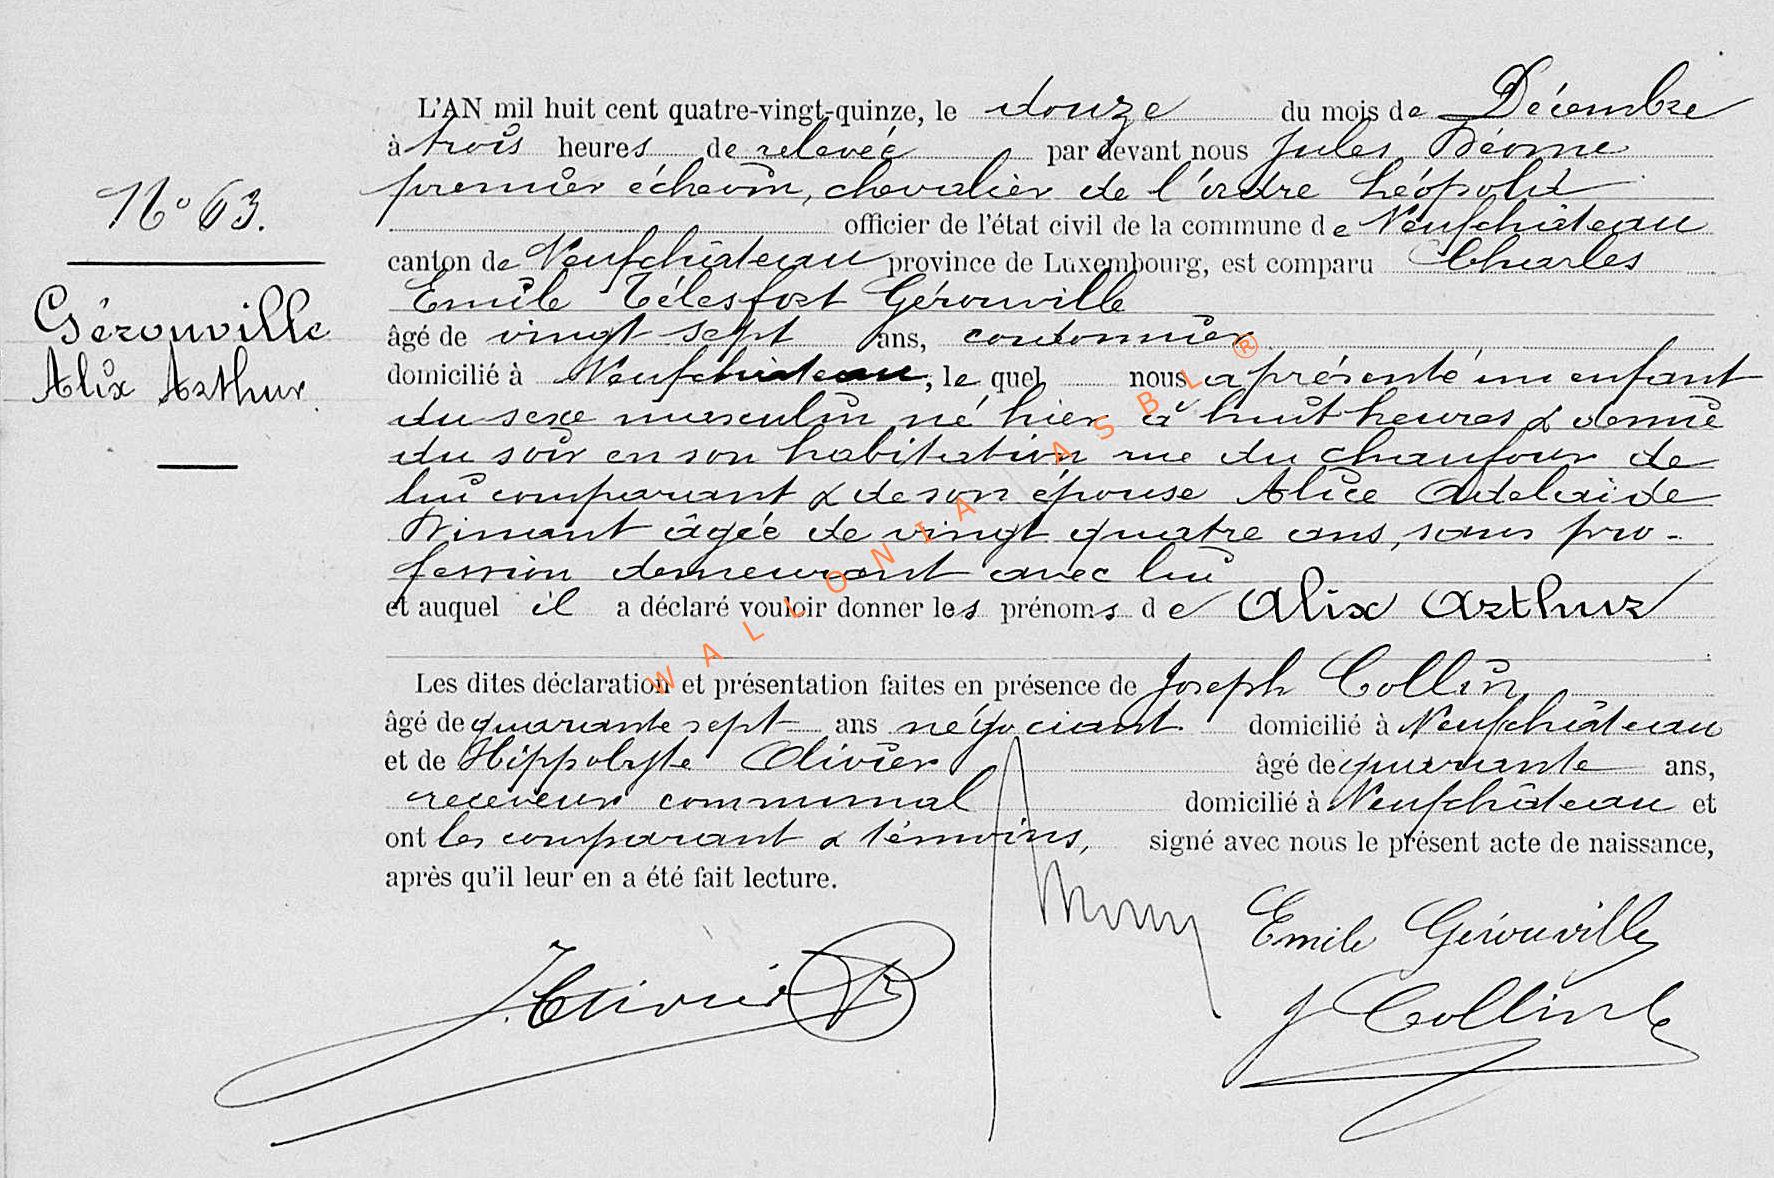 L'AN mil huit cent quatre-vingt-quinze, le douze du mois de Décembre
à trois heures de relevée par devant nous Jules
premier échevin, chevalier de l'ordre Léopold
N° 63.
officier de l'état civil de la commune de Neufchâteau
canton de Neufchâteau province de Luxembourg, est comparu Charles
Emile Télesfort Gérouville
Gérouville
âgé de vingt sept ans, cordonnier
Alix Arthur.
domicilié à Neufchâteau, le quel nous a présenté un enfant
du sexe masculin né hier à huit heures & demie
du soir en son habitation rue du chaufour de
lui comparant & de son épouse Alice Adelaïde
âgée de vingt quatre ans, sans pro-
fession demeurant avec lui
et auquel il a déclaré vouloir donner les prénoms de Alix Arthur
Les dites déclaration et présentation faites en présence de Joseph Collin,
âgé de quarante sept ans négociant domicilié à Neufchâteau
et de Hippolyte Olivier âgé de quarante ans,
receveur communal domicilié à Neufchâteau et
ont les comparant & témoins, signé avec nous le présent acte de naissance,
après qu'il leur en a été fait lecture.
Emile Gérouville
J Collin
WALLONIA ASBL ®